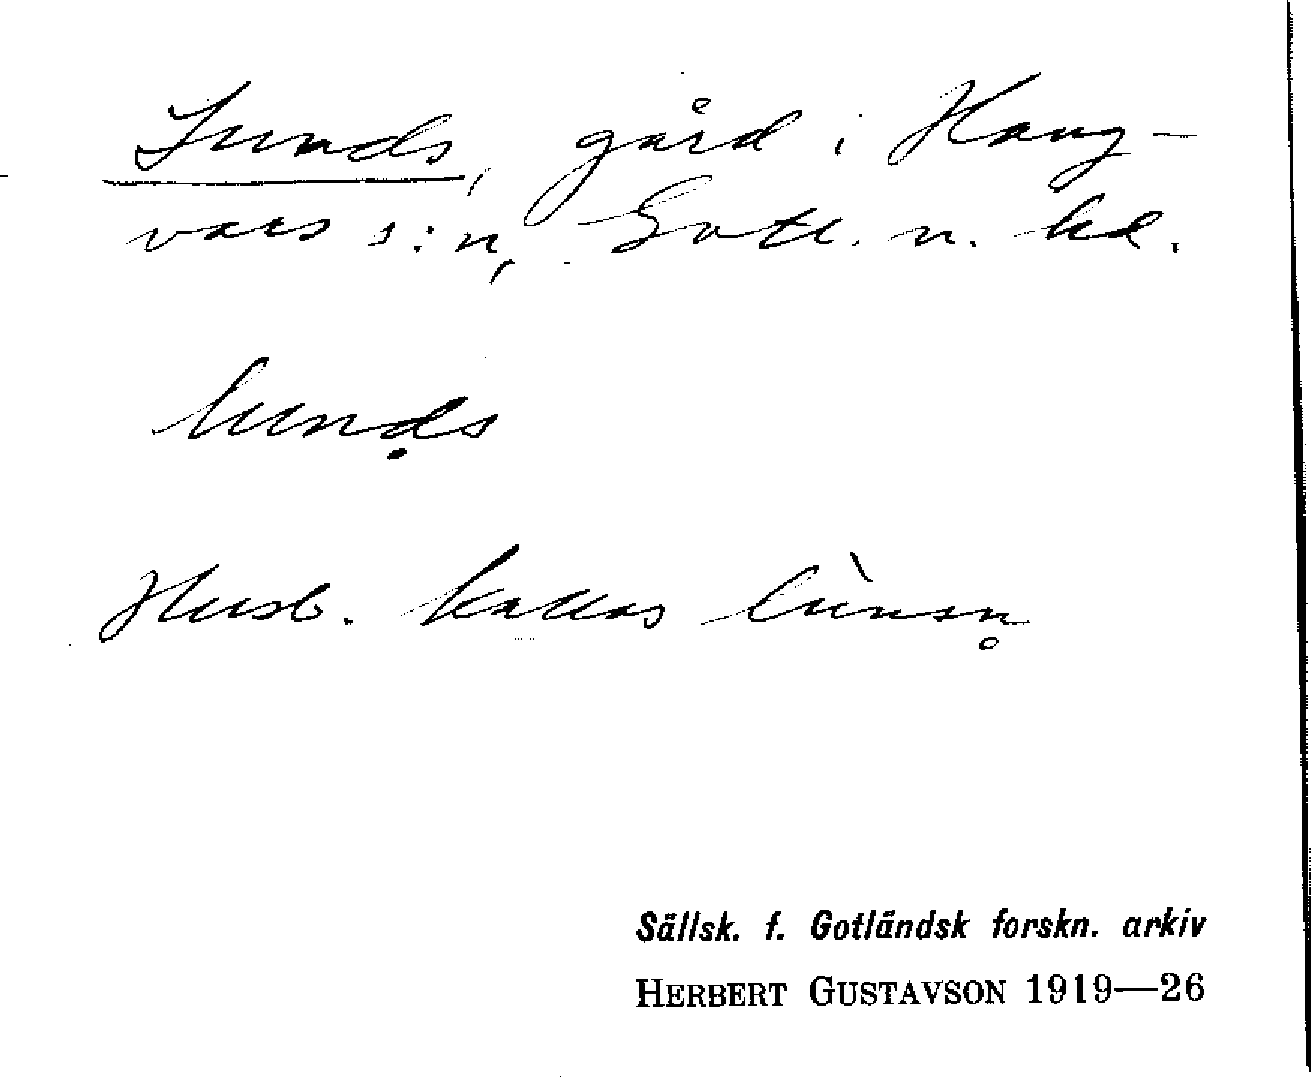 Lunds, gård i Hang-
vars s:n, Gotl. n. hd.
lunḍs
Husb. kallas lùnsn̥
Sällsk. f. Gotländsk forskn. arkiv
HERBERT GUSTAVSON 1919—26